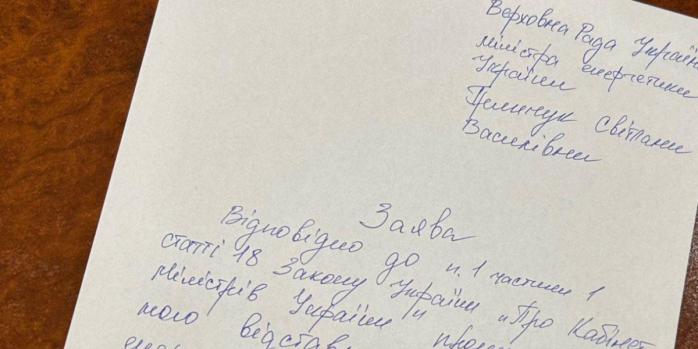 Верховна Рада Україн
Міністра енергетики
України
Гринчук Світлани
Василівни
Заява
Відповідно до п.1 частини 1
статті 18 Закону України "Про Кабінет
Міністрів України"
мою відстав